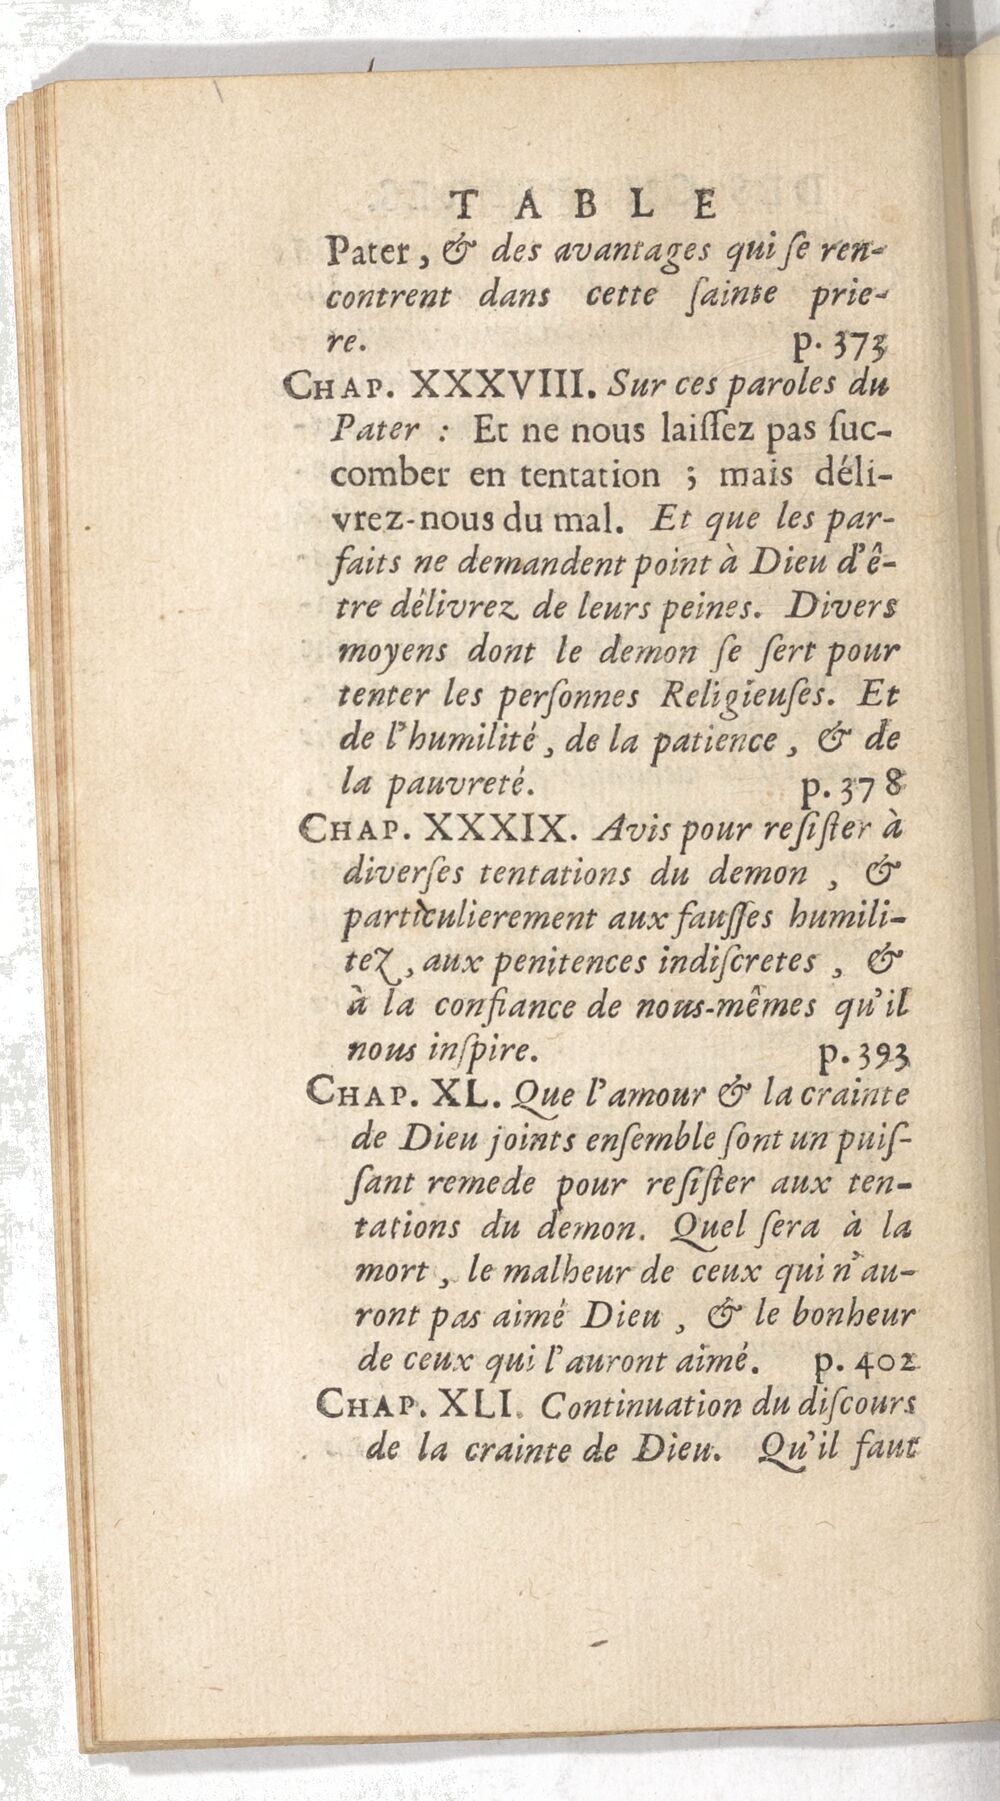 TABLE
Pater, & des avantages qui ſe ren-
contrent dans cette ſainte prie-
re. p. 373
CHAP. XXXVIII. Sur ces paroles du
Pater : Et ne nous laiſſez pas ſuc-
comber en tentation ; mais déli-
vrez-nous du mal. Et que les par-
faits ne demandent point à Dieu d'ê-
tre délivrez de leurs peines. Divers
moyens dont le demon ſe ſert pour
tenter les perſonnes Religieuſes. Et
de l'humilité, de la patience, & de
la pauvreté. p. 378
CHAP. XXXIX. Avis pour reſiſter à
diverſes tentations du demon, &
particulierement aux fauſſes humili-
tez, aux penitences indiſcretes, &
à la confiance de nous-mêmes qu'il
nous inſpire. p. 393
CHAP. XL. Que l'amour & la crainte
de Dieu joints enſemble ſont un puiſ-
ſant remede pour reſiſter aux ten-
tations du demon. Quel ſera à la
mort, le malheur de ceux qui n'au-
ront pas aimé Dieu, & le bonheur
de ceux qui l'auront aimé. p. 402
CHAP. XLI. Continuation du diſcours
de la crainte de Dieu. Qu'il faut